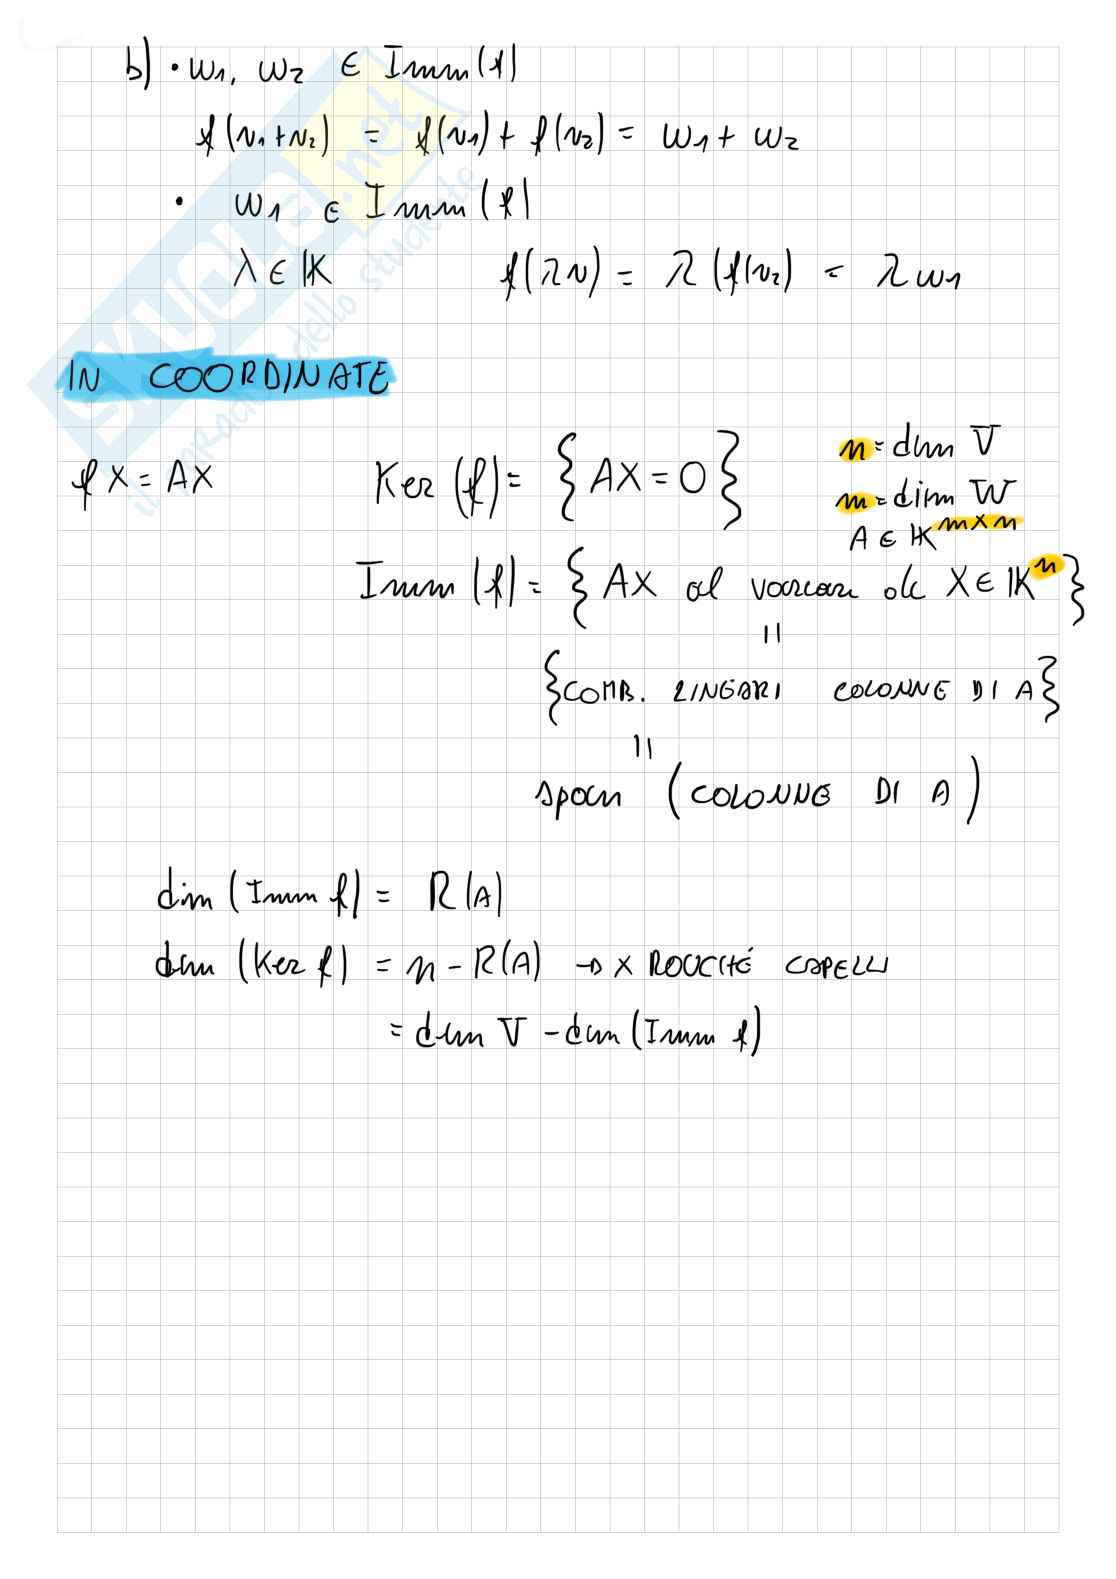 b) • w₁, w₂ ∈ Imm(f)
f(v₁+v₂) = f(v₁) + f(v₂) = w₁ + w₂
• w₁ ∈ Imm(f)
λ ∈ K f(λv) = λ(f(v₂) = λw₁
IN COORDINATE
fX = AX Ker(f) = {AX = 0} n = dim V
m = dim W
A ∈ K^{m×n}
Imm(f) = {AX al variare di X ∈ K^n}
=
{COMB. LINEARI COLONNE DI A}
=
span (COLONNE DI A)
dim (Imm f) = R(A)
dim (Ker f) = n - R(A) → X ROUCHÉ CAPELLI
= dim V - dim (Imm f)
SKUOLA.net
il paradiso dello studente